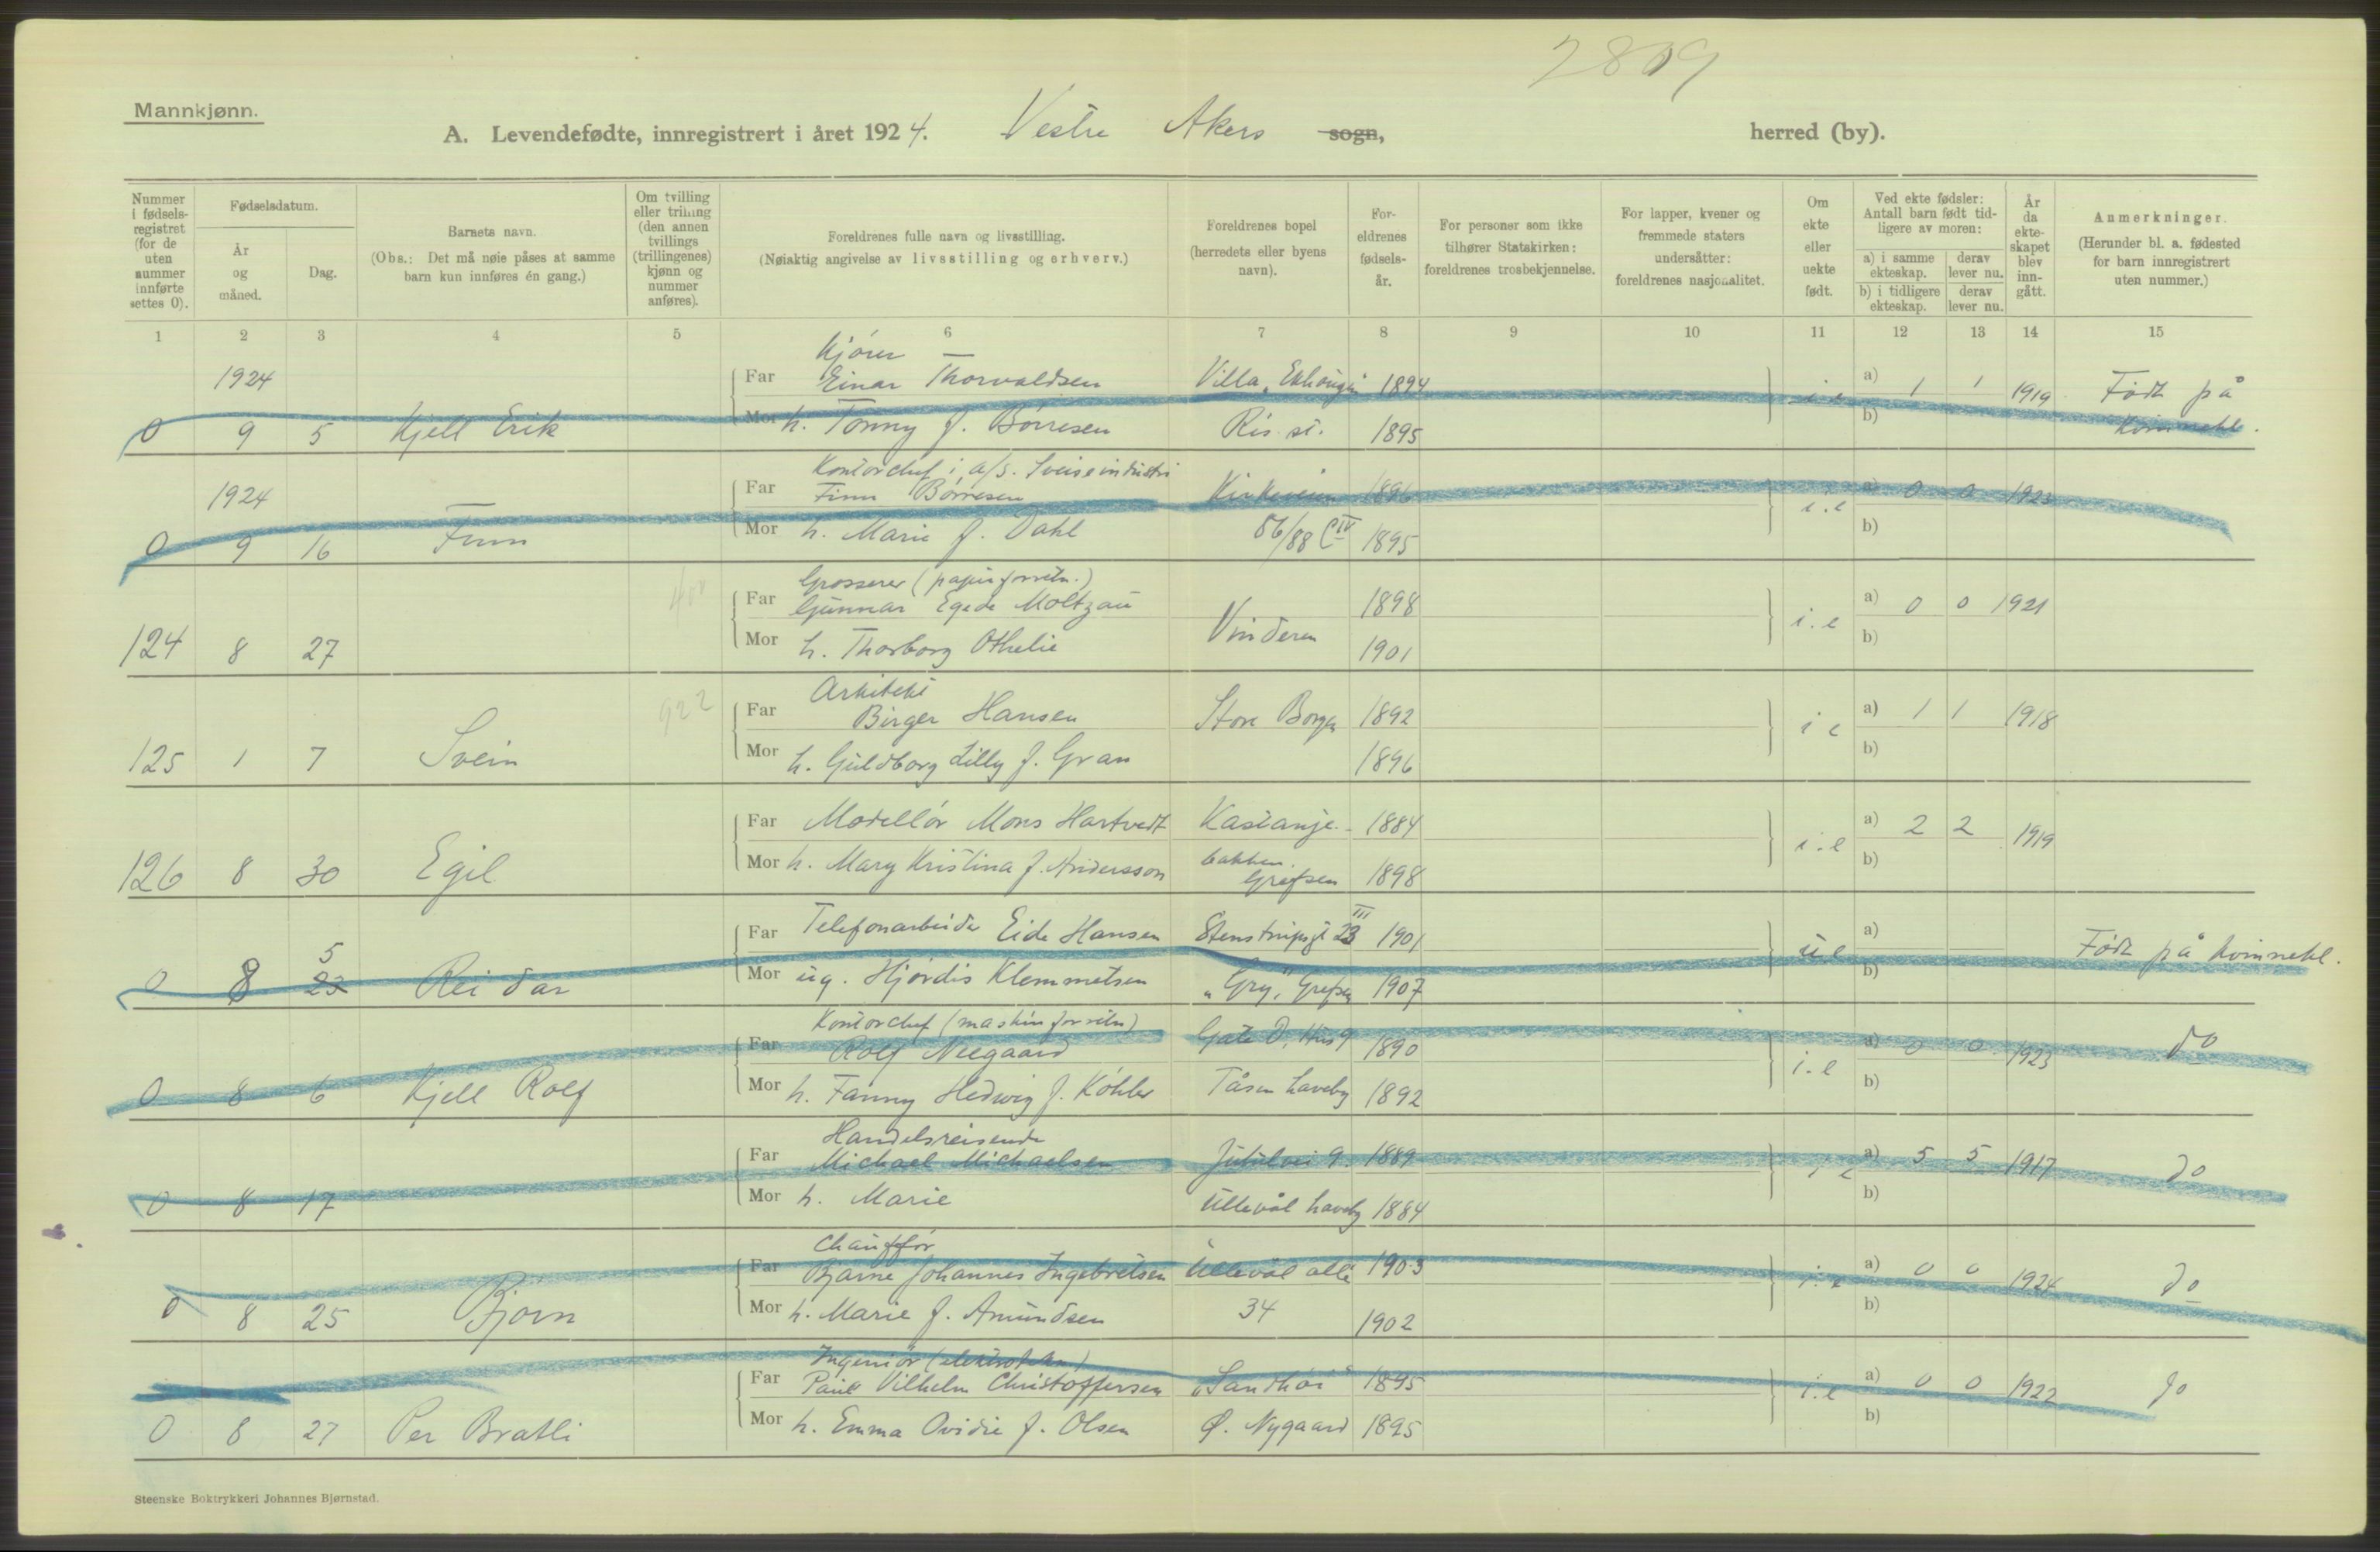 2809
Mannkjønn.
A. Levendefødte, innregistrert i året 1924. Vestre Akers sogn, herred (by).
Nummer i fødsels-registret (for de uten nummer innførte settes 0).
Fødselsdatum.
År og måned.
Dag.
Barnets navn.
(Obs.: Det må nøie påses at samme barn kun innføres én gang.)
Om tvilling eller trilling (den annen tvillings (trillingenes) kjønn og nummer anføres).
Foreldrenes fulle navn og livsstilling.
(Nøiaktig angivelse av livsstilling og erhverv.)
Foreldrenes bopel (herredets eller byens navn).
For-eldrenes fødsels-år.
For personer som ikke tilhører Statskirken: foreldrenes trosbekjennelse.
For lapper, kvener og fremmede staters undersåtter: foreldrenes nasjonalitet.
Om ekte eller uekte født.
Ved ekte fødsler: Antall barn født tid-ligere av moren:
a) i samme ekteskap. derav lever nu.
b) i tidligere ekteskap. derav lever nu.
År da ekte-skapet blev inn-gått.
Anmerkninger.
(Herunder bl. a. fødested for barn innregistrert uten nummer.)
1 2 3 4 5 6 7 8 9 10 11 12 13 14 15
Kjører
1924 Far Einar Thorvaldsen Villa 1894 i e a) 1 1 1919 Født på
0 9 5 Kjell Erik Mor h. Tonny f. Børresen Ris st. 1895 b) Kvinnekl.
Kontorchef i a/s. Sveiseindustri
1924 Far Finn Børresen Kirkeveien 1896 i.e a) 0 0 1923
0 9 16 Finn Mor h. Marie f. Dahl 86/88 C IV 1895 b)
Grosserer (papirforretn.)
Far Gunnar Egede Moltzau Vinderen 1898 i.e a) 0 0 1921
124 8 27 Mor h. Thorborg Othelie 1901 b)
922
Arkitekt
Far Birger Hansen Store Borgen 1892 i e a) 1 1 1918
125 1 7 Svein Mor h. Guldborg Lilly f. Gran 1896 b)
Far Modellør Mons Hartvedt Kastanje- 1884 i.e a) 2 2 1919
126 8 30 Egil Mor h. Mary Kristina f. Andersson bakken Grefsen 1898 b)
Far Telefonarbeider Eide Hansen Stenstrupsgt 23 III 1901 u e a) Født på kvinnekl.
0 8 23 5 Reidar Mor ug. Hjørdis Klemmetsen "Gry", Grefsen 1907 b)
Kontorchef (maskinforretn)
Far Rolf Neegaard Gate D, Hus 9 1890 i.e a) 0 0 1923 do
0 8 6 Kjell Rolf Mor h. Fanny Hedwig f. Köhler Tåsen haveby 1892 b)
Handelsreisende
Far Michael Michaelsen Jutulvei 9. 1889 i e a) 5 5 1917 do
0 8 17 Mor h. Marie Ullevål haveby 1884 b)
Chauffør
Far Bjarne Johannes Ingebretsen Ullevål allé 1903 i.e a) 0 0 1924 do
0 8 25 Bjørn Mor h. Marie f. Amundsen 34 1902 b)
Ingeniør (elektrotekn)
Far Paul Vilhelm Christoffersen "Sandhøi" 1895 i.e a) 0 0 1922 do
0 8 27 Per Bratli Mor h. Emma Ovidie f. Olsen Ø. Nygaard 1895 b)
Steenske Boktrykkeri Johannes Bjørnstad.